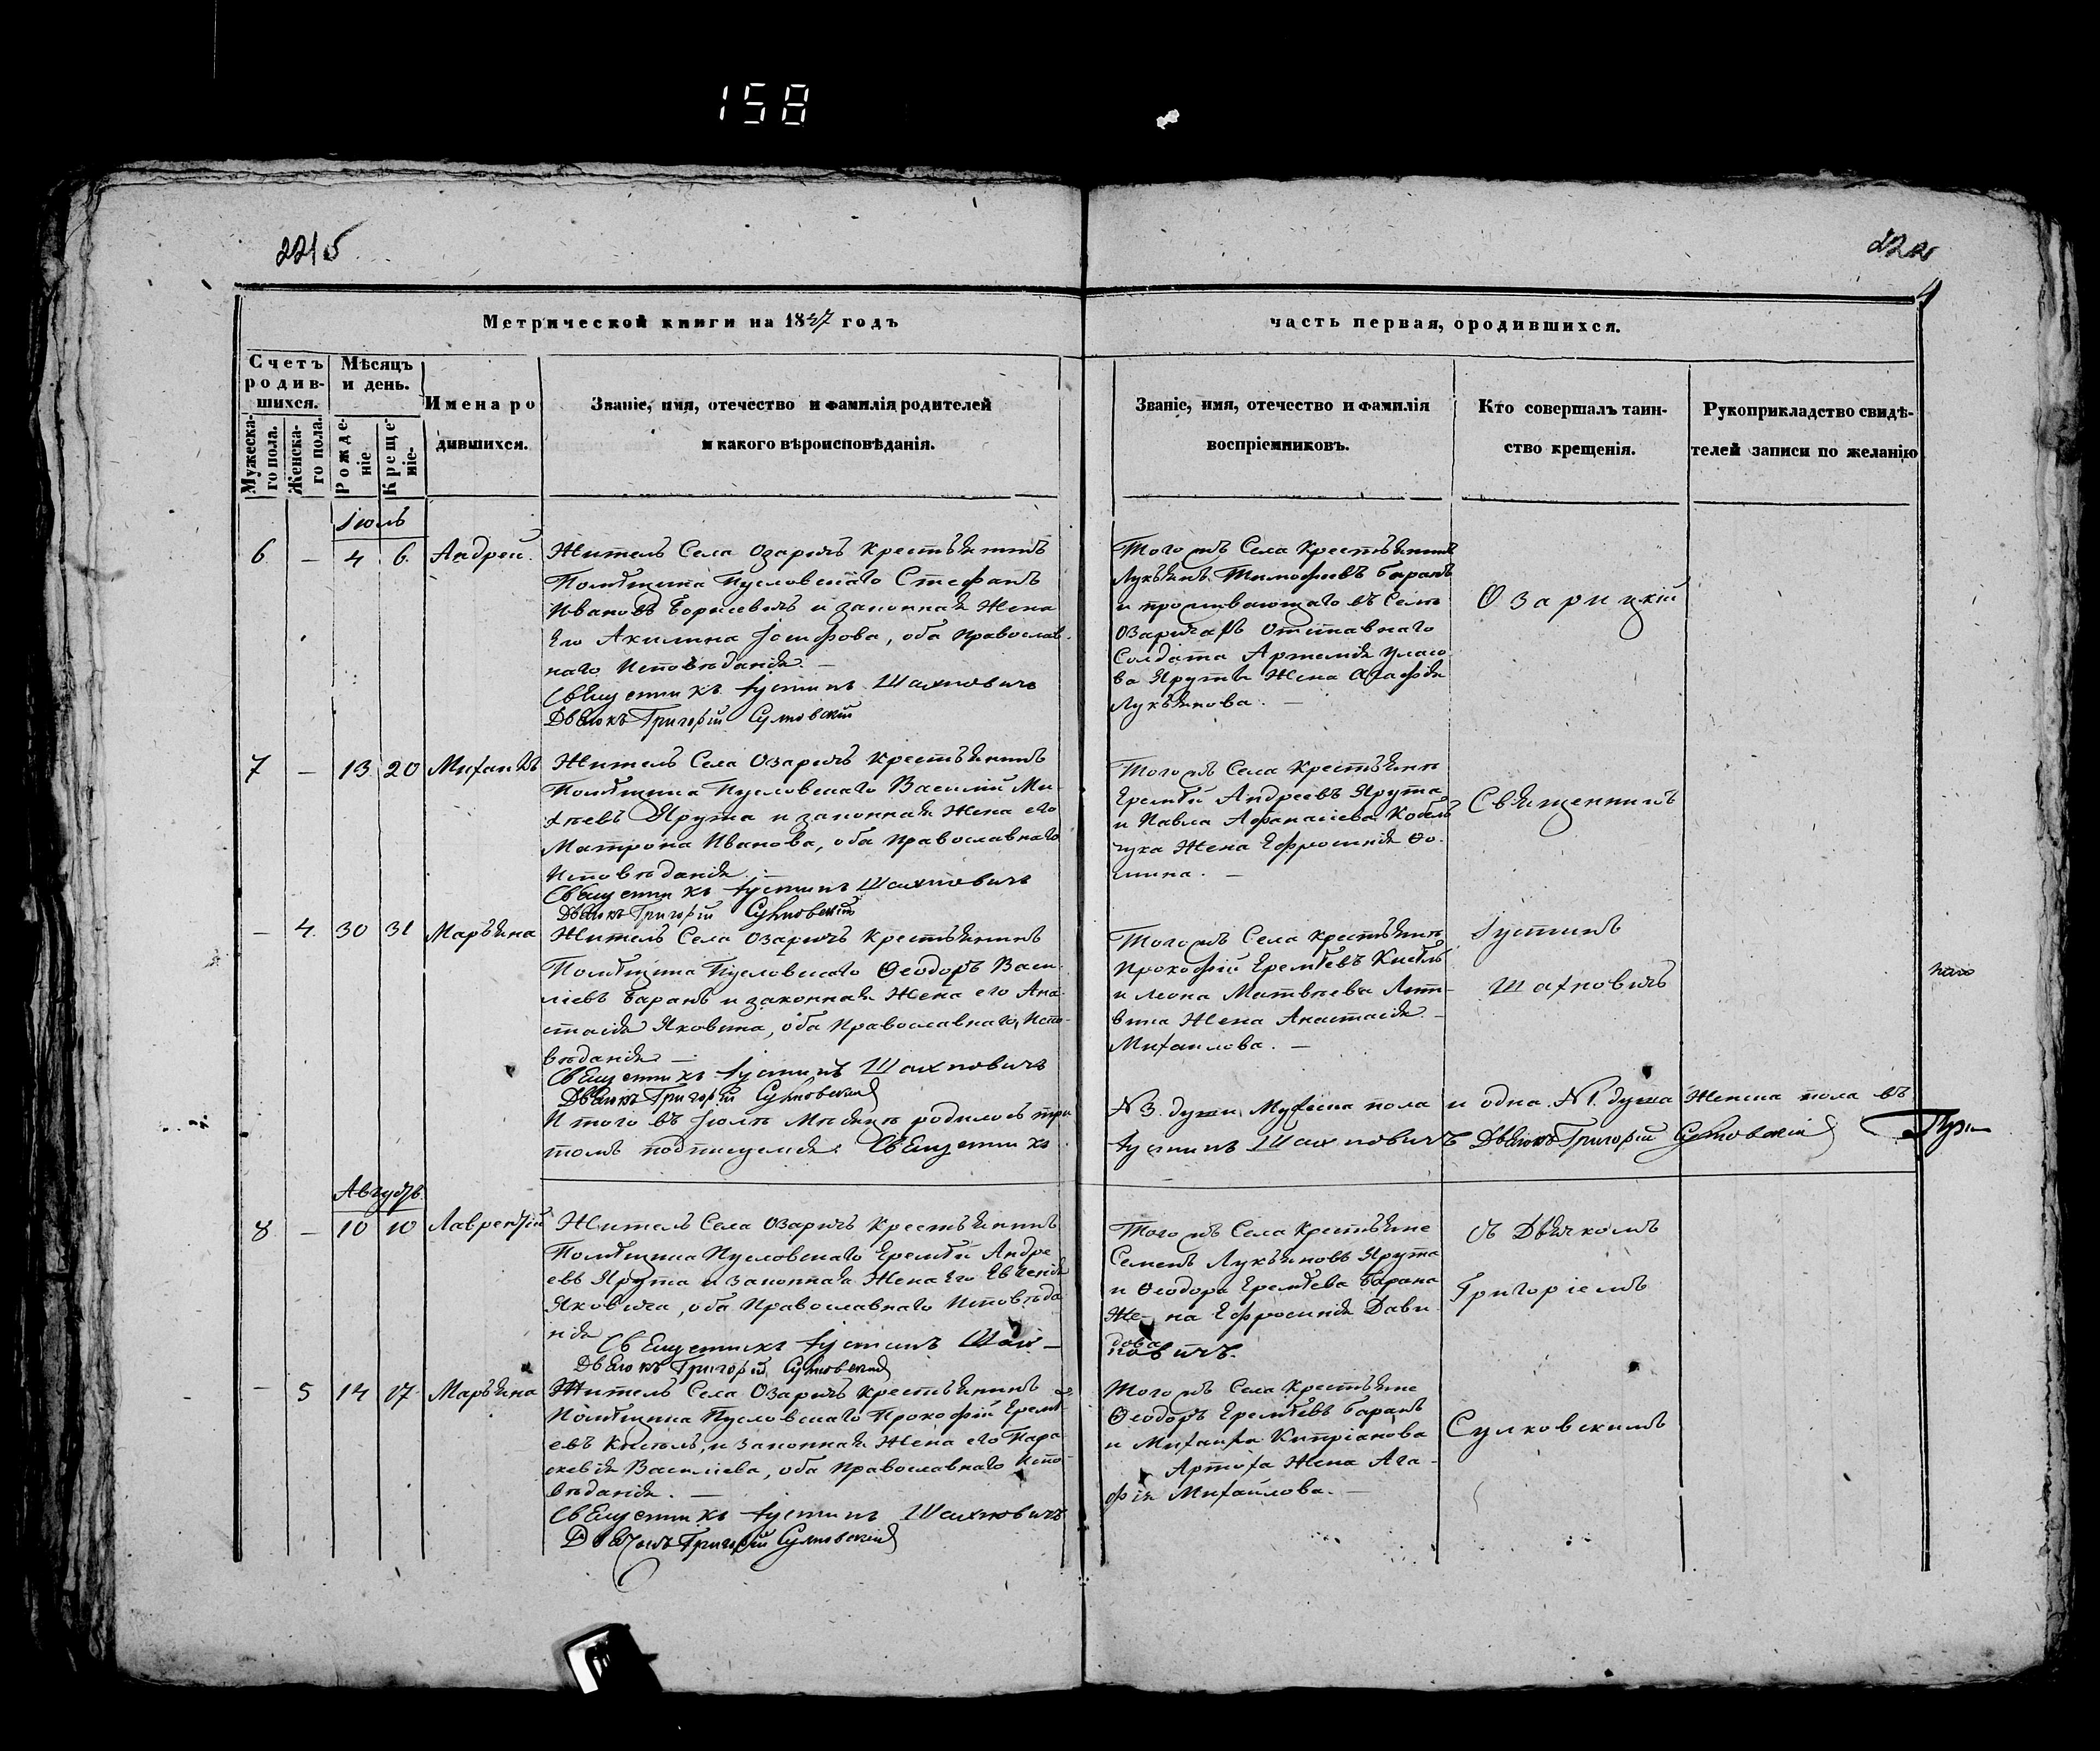 158
221б
222
4
Метрической книги на 1847 годъ
часть первая, ородившихся.
Счетъ
родив-
шихся.
Мѣсяцъ
и день.
Мужеска-
го пола.
Женска-
го пола.
Рожде-
ніе.
Креще-
ніе.
Имена ро
дившихся.
Званіе, имя, отечество и фамилія родителей
и какого вѣроисповѣданія.
Званіе, имя, отечество и фамилія
воспріемниковъ.
Кто совершалъ таин-
ство крещенія.
Рукоприкладство свидѣ-
телей записи по желанію
Іюль
6 — 4 6. Андрей.
Житель Села Озаричъ крестьянинъ
Помѣщика Пусловскаго Стефанъ
Ивановъ Борисевичъ и законная Жена
Его Акилина Іосифова, оба православ-
наго Исповѣданія. —
Священникъ Іустинъ Шахновичъ
Дьячокъ Григорій Сулковскій
Того жъ Села Крестьянинъ
Лукьянъ Тимофеевъ Баранъ
и проживающаго въ Селѣ
Озаричахъ Отставнаго
Солдата Артемія Уласо
ва Ярути Жена Агафія
Лукьянова. —
Озарицкій
7 — 13 20 Михаилъ
Житель Села Озаричъ крестьянинъ
Помѣщика Пусловскаго Василій Ми-
хѣевъ Ярута и законная Жена его
Матрона Иванова, оба православнаго
Исповѣданія. —
Священникъ Іустинъ Шахновичъ
Дьячокъ Григорій Сулковскій
Того жъ Села Крестьянинъ
Еремѣй Андреевъ Ярута
и Павла Афанасіева
Жена Ефросинія Ѳо.
мина. —
Священникъ
— 4. 30 31 Марьяна
Житель Села Озаричъ крестьянинъ
Помѣщика Пусловскаго Ѳеодоръ Васи-
ліевъ Баранъ и законная Жена его Ана-
стасія Яковина, оба Православнаго Испо-
вѣданія —
Священникъ Іустинъ Шахновичъ
Дьячокъ Григорій Сулковскій
Того жъ Села крестьянинъ
Прокофій Еремѣевъ Кисѣль
и Леона Матвѣева Лит-
вина Жена Анастасія —
Михаилова. —
Іустинъ
Шахновичъ
Итого въ Іюлѣ Мѣсяцѣ родилось три
N 3. души Мужеска пола и одна N 1. душа Женска пола въ
томъ подписуемся. Священникъ
Іустинъ Шахновичъ Дьячокъ Григорій Сулковскій
Августъ.
8 — 10 10 Лаврентій
Житель Села Озаричъ крестьянинъ
Помѣщика Пусловскаго Еремѣй Андре
евъ Ярута и законная Жена Его Евгенія
Яковича, оба Православнаго Исповѣда
нія Священникъ Іустинъ Шах—
Дьячокъ Григорій Сулковскій
Того жъ Села Крестьяне
Семенъ Лукьяновъ Ярута
и Ѳеодора Еремѣева Барана
Же- на Ефросинія Дави
дова
новичъ.
съ Дьячкомъ
Григоріемъ
— 5 14 17 Марьяна
Житель Села Озаричъ крестьянинъ
Помѣщика Пусловскаго Прокофій Еремѣ-
евъ Кисѣль, и законная Жена его Пара
скевія Василіева, оба православнаго Испо-
вѣданія. —
Священникъ Іустинъ Шахновичъ
Дьячокъ Григорій Сулковскій
Того жъ Села Крестьяне
Ѳеодоръ Еремѣевъ Баранъ
и Михаила Кипріанова
Артюха Жена Ага-
фія Михайлова. —
Сулковскимъ